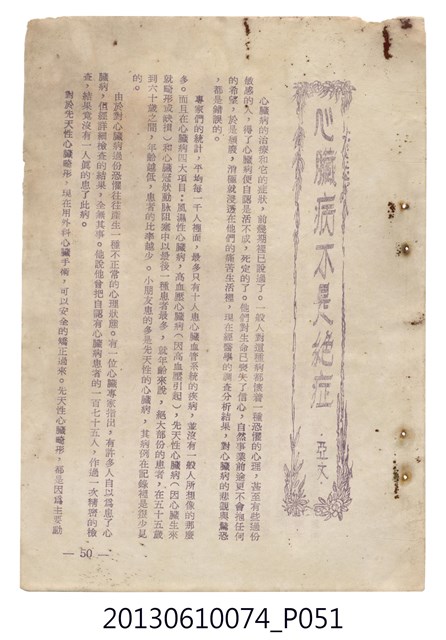 心臟病不是絕症
亞文
心臟病的治療和它的症狀,前幾期裡已說過了。一般人對這種病都懷着一種恐懼的心理,甚至有些過份
敏感的人,得了心臟病便自認是活不成,死定的了。他們對生命已喪失了信心,自然事業前途更不會抱任何
的希望,於是頹廢,消極就浸透在他們的痛苦生活裡,現在經醫學的調查分析結果,對心臟病的悲觀與驚恐
,都是錯誤的。
專家們的統計,平均每一千人裡面,最多只有十人患心臟血管系統的疾病,並沒有一般人所想像的那麼
多。而且在心臟病四大項目:風濕性心臟病,高血壓心臟病(因高血壓引起),先天性心臟病(因心臟生來
就畸形或缺損)和心臟冠狀動脉阻塞中以最後一種患者最多,就年齡來說,絕大部份的患者,在五十五歲
到六十歲之間,年齡越低,患者的比率越少。小朋友患的多是先天性的心臟病,其病例在記錄裡是很少見
的。
由於對心臟病過份恐懼往往產生一種不正常的心理狀態。有一位心臟專家指出,有許多人自以爲患了心
臟病,但經詳細檢查的結果,全無其事。他說他曾把自認有心臟病患者的一百七十五人,作過一次精密的檢
查,結果竟沒有一人眞的患了此病。
對於先天性心臟畸形,現在用外科心臟手術,可以安全的矯正過來。先天性心臟畸形,都是因爲主要動
— 50 —
20130610074_P051